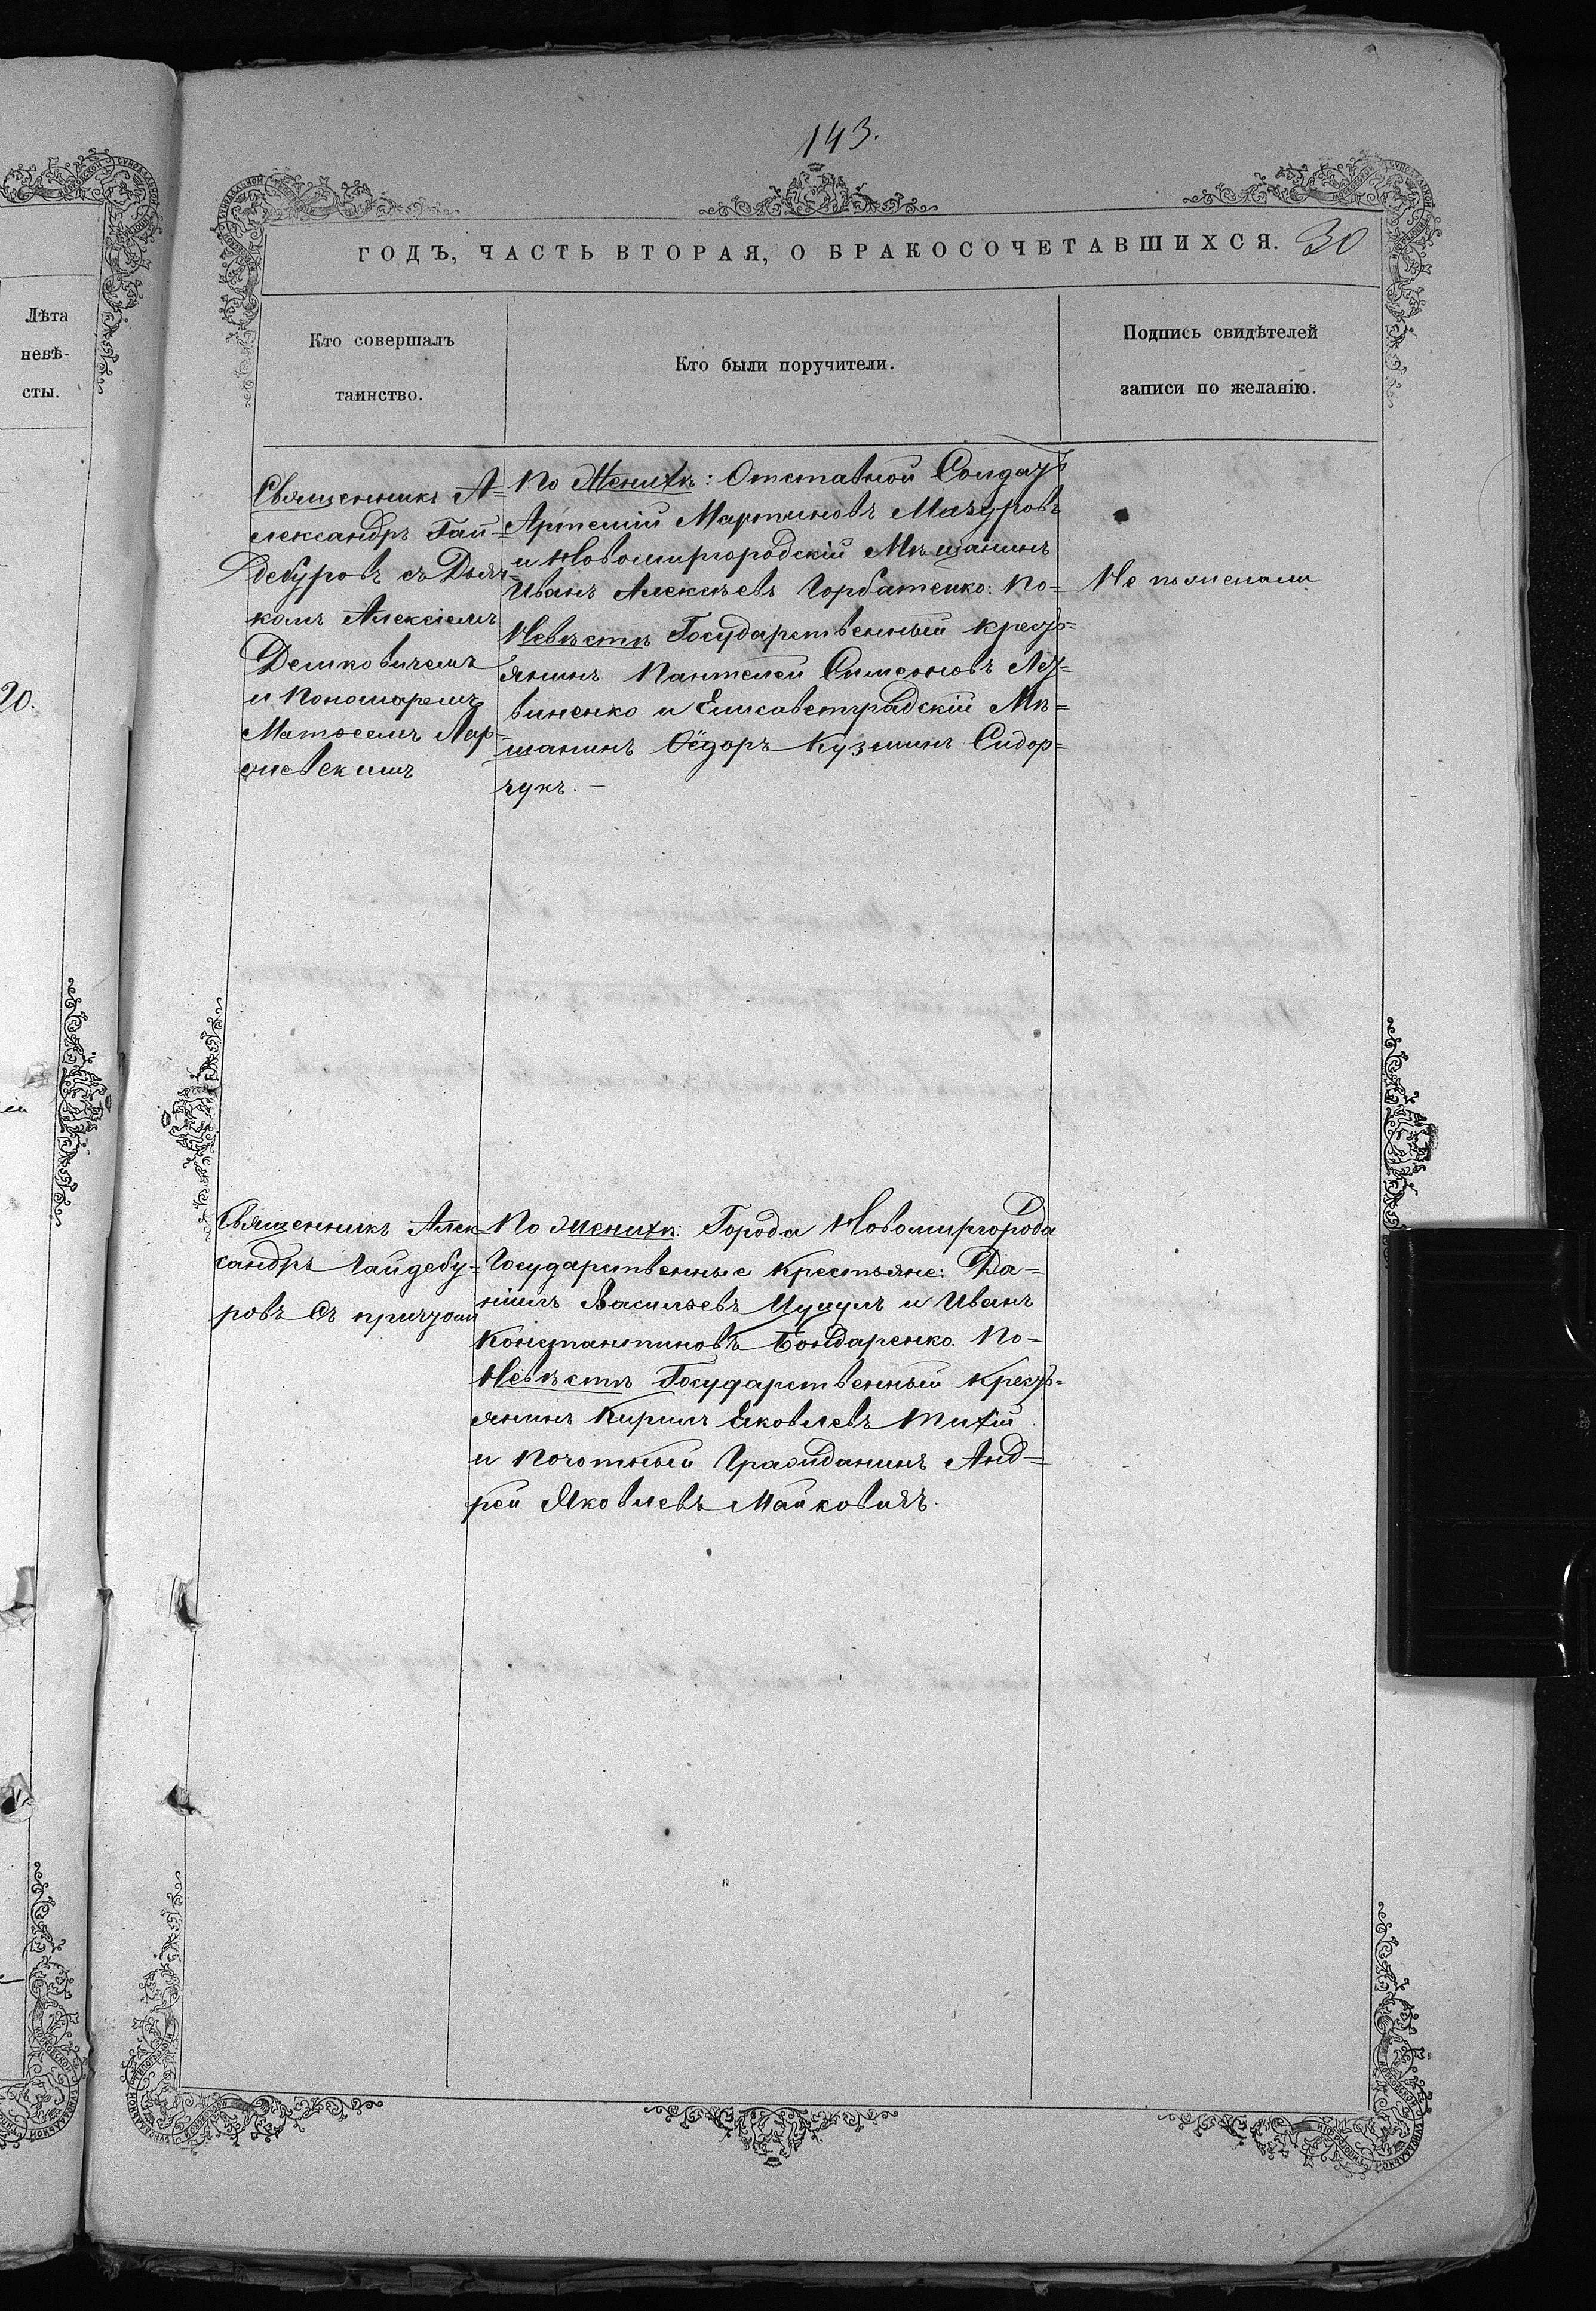 143.
ГОДЪ, ЧАСТЬ ВТОРАЯ, О БРАКОСОЧЕТАВШИХСЯ. 30
Лѣта
невѣ-
сты.
20.
Кто совершалъ
таинство.
Кто были поручители.
Подпись свидѣтелей
записи по желанію.
Священникъ А=
лександръ Гай=
дебуровъ съ Дьяч=
комъ Алексіемъ
Демковичемъ
и Пономаремъ
Матѳеемъ
По Женихѣ: Отставной Солдатъ
Артемій Мартиновъ Мачуровъ
и Новомиргородскій Мѣщанинъ
Иванъ Алексѣевъ Горбатенко: По=
Невѣстѣ Государственный крестъ=
янинъ Пантелей Симеоновъ
и Елисаветградскій Мѣ=
щанинъ Ѳёдоръ Кузминъ Сидор=
чукъ. —
Не пожелали
Священникъ Алек=
сандръ Гайдебу=
ровъ Съ причтом
По Женихѣ: Города Новомиргорода
Государственные Крестьяне: Да=
ніилъ Васильевъ и Иванъ
Константиновъ Бондаренко. По=
Невѣстѣ Государственный крестъ=
янинъ Кирилъ Яковлевъ Тихій
и Почотный Гражданинъ Анд=
рей Яковлевъ Майковичъ.